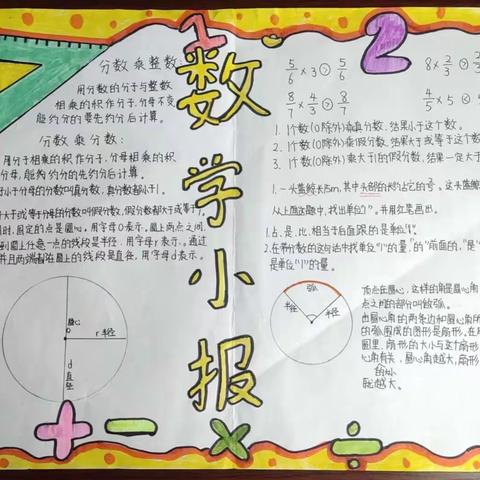 1
2
数学小报
分数乘整数:
用分数的分子与整数
相乘的积作分子,分母不变
能约分的要先约分后计算。
分数乘分数:
用分子相乘的积作分子,分母相乘的积
能够约分的先约分后计算。
小于分母的分数叫真分数,真分数都小于1。
大于或等于分母的分数叫假分数,假分数都大于或等于1。
时,固定的点是圆心,用字母O表示,圆上两点之间,
到圆上任意一点的线段是半径,用字母r表示,通过
并且两端都在圆上的线段是直径,用字母d表示。
圆心
o
r 半径
d
直径
5/6 × 3 > 5/6
8 × 2/3 >
8/7 × 4/3 > 8/7
4/5 × 5 <
1. 1个数(0除外)乘真分数,结果小于这个数。
2. 1个数(0除外)乘假分数,结果大于或等于这个数
3. 1个数(0除外)乘大于1的假分数,结果一定大于
1. 一头蓝鲸长5m,其中头部的约占它的
从上面这题中,找出单位"1",并用红笔画出。
1. 占,是,比,相当于后面跟的是单位"1"。
2. 在带分数的这句话中找单位"1"的量,"的"前面的,"是"
是单位"1"的量。
弧
半径
半径
顶点在圆心,这样的角是圆心角
点之间的部分叫做弧。
由圆心角的两条边和圆心角所
的弧围成的图形是扇形。在
圆里,扇形的大小与这个扇形
心角有关,圆心角越大,扇形
就越大。
+
−
×
÷